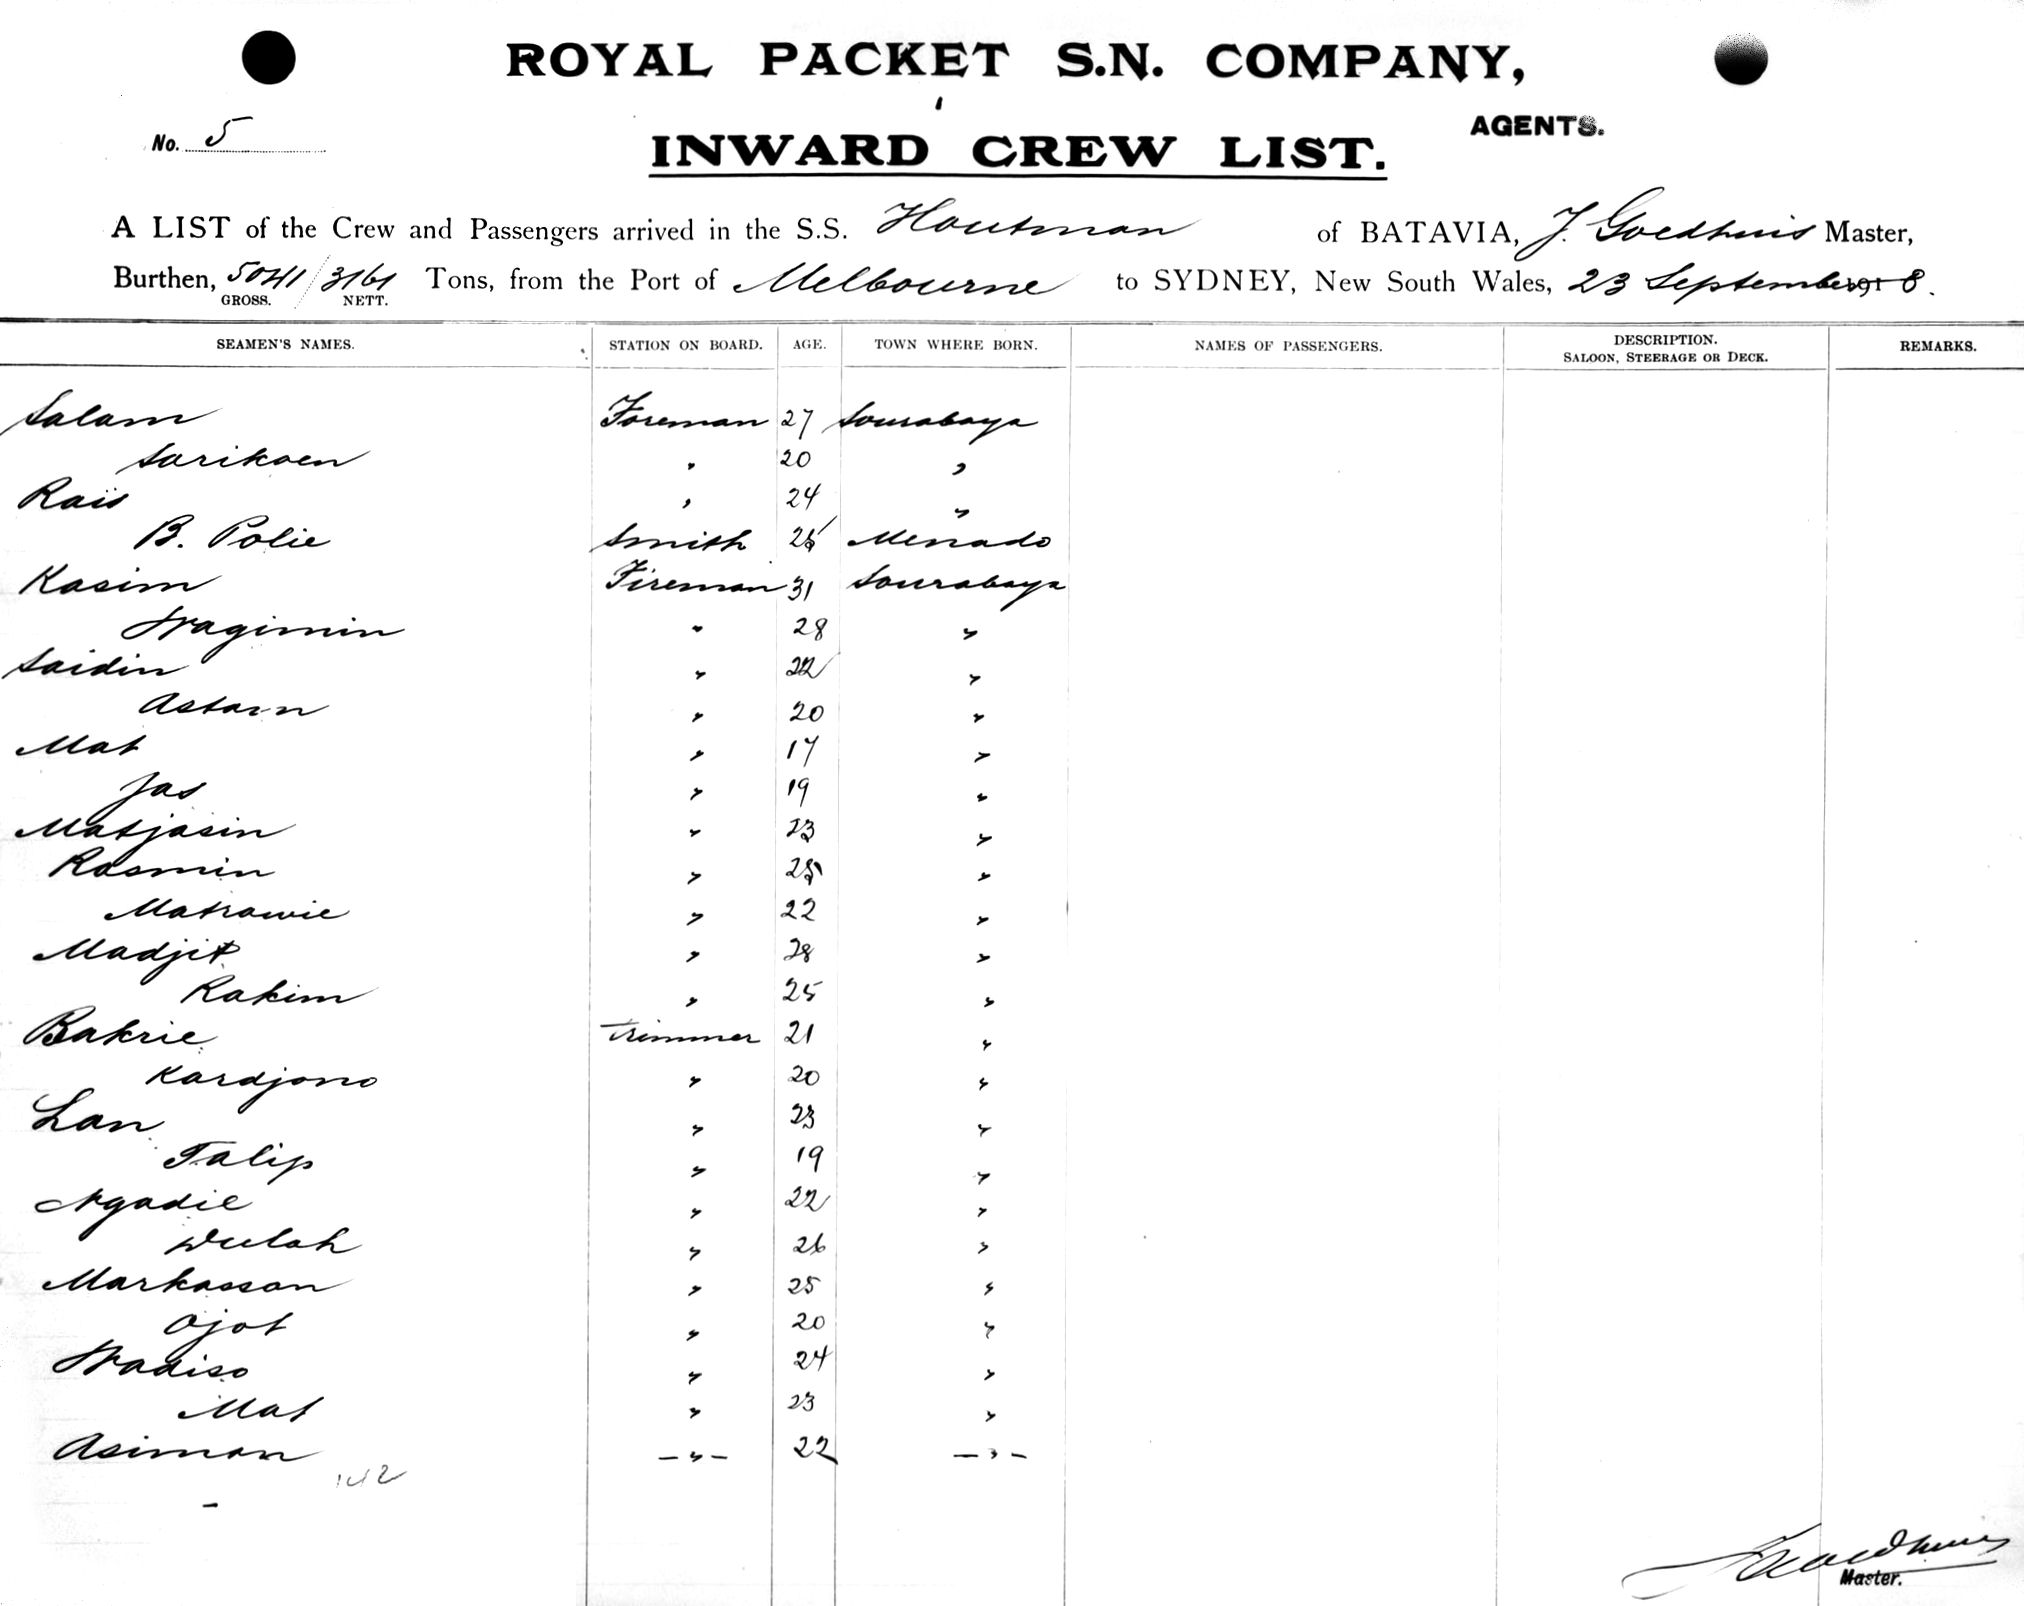 ROYAL PACKET S.N. COMPANY,
AGENTS.
No. 5
INWARD CREW LIST.
A LIST of the Crew and Passengers arrived in the S.S. Houtman of BATAVIA, J. Goedhuis Master,
Burthen, 5041 / 3161 Tons, from the Port of Melbourne to SYDNEY, New South Wales, 23 September 1918.
GROSS. NETT.
SEAMEN'S NAMES. STATION ON BOARD. AGE. TOWN WHERE BORN. NAMES OF PASSENGERS. DESCRIPTION. SALOON, STEERAGE OR DECK. REMARKS.
Salam Foreman 27 Sourabaya
Sarikoen " 20 "
Rais " 24 "
B. Polie Smith 25 Menado
Kasim Fireman 31 Sourabaya
Wagimin " 28 "
Saidin " 22 "
Astam " 20 "
Mat " 17 "
Jas " 19 "
Matjasin " 23 "
Rasmin " 25 "
Matrawie " 22 "
Madjit " 28 "
Rakim " 25 "
Bakrie Trimmer 21 "
Kardjono " 20 "
Lan " 23 "
Talip " 19 "
Ngadie " 22 "
Dulah " 26 "
Markassan " 25 "
Ojot " 20 "
Wadiso " 24 "
Mat " 23 "
Asiman — " — 22 — " —
JGoedhuis
Master.